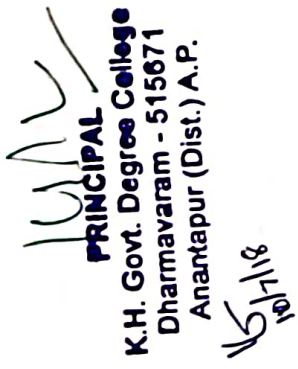 PRINCIPAL
K.H. Govt. Degree College
Dharmavaram - 515671
Anantapur (Dist.) A.P.
10/7/18